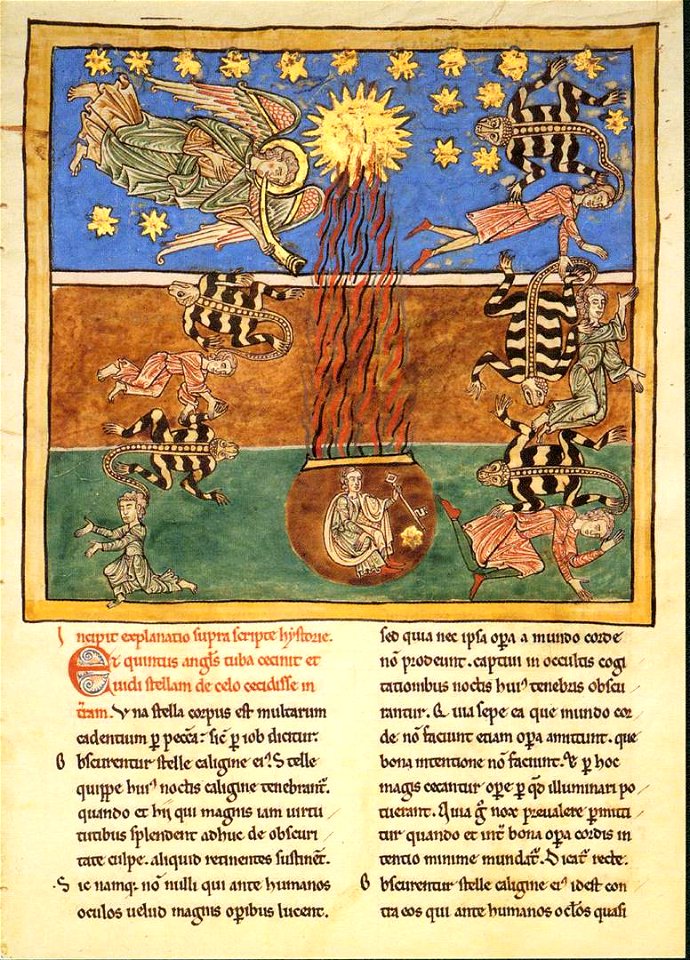 Incipit explanatio supra scripte hystorie.
Et quintus angls tuba cecinit et
uidi stellam de celo cecidisse in
tram. Una stella corpus est multarum
cadentium p pecca: sic p iob dicitur.
Obscurentur stelle caligine eiꝰ. Stelle
quippe huiꝰ noctis caligine tenebrantr.
quando et hij qui magnis iam uirtu
tutibus splendent adhuc de obscuri
tate culpe. aliquid retinentes sustinet.
Sic namqꝫ nō nulli qui ante humanos
oculos uelud magnis opibus lucent.
sed quia nec ipsa opa a mundo corde
nō prodeunt. captiui in occultis cogi
tationibus noctis huiꝰ tenebris obscu
rantur. Quia sepe ea que mundo cor
de nō faciunt etiam opa amittunt. que
bona intentione nō faciunt. Et p hoc
magis cecantur ope p qd illuminari po
tuerant. Quia g nox preualere pmitti
tur quando et int bona opa cordis in
tentio minime mundat. Dicat recte.
Obscurentur stelle caligine eiꝰ idest con
tra eos qui ante humanos oclos quasi